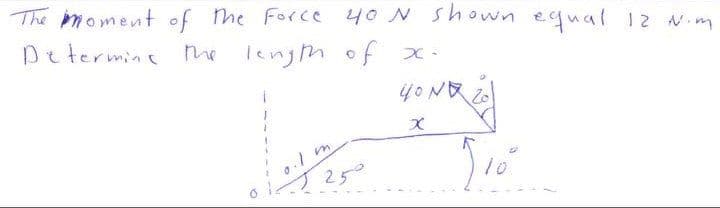 The moment of the Force 40 N shown equal 12 N.m
Determine the length of x.
40 N 20°
x
0.1 m
25°
10°
o